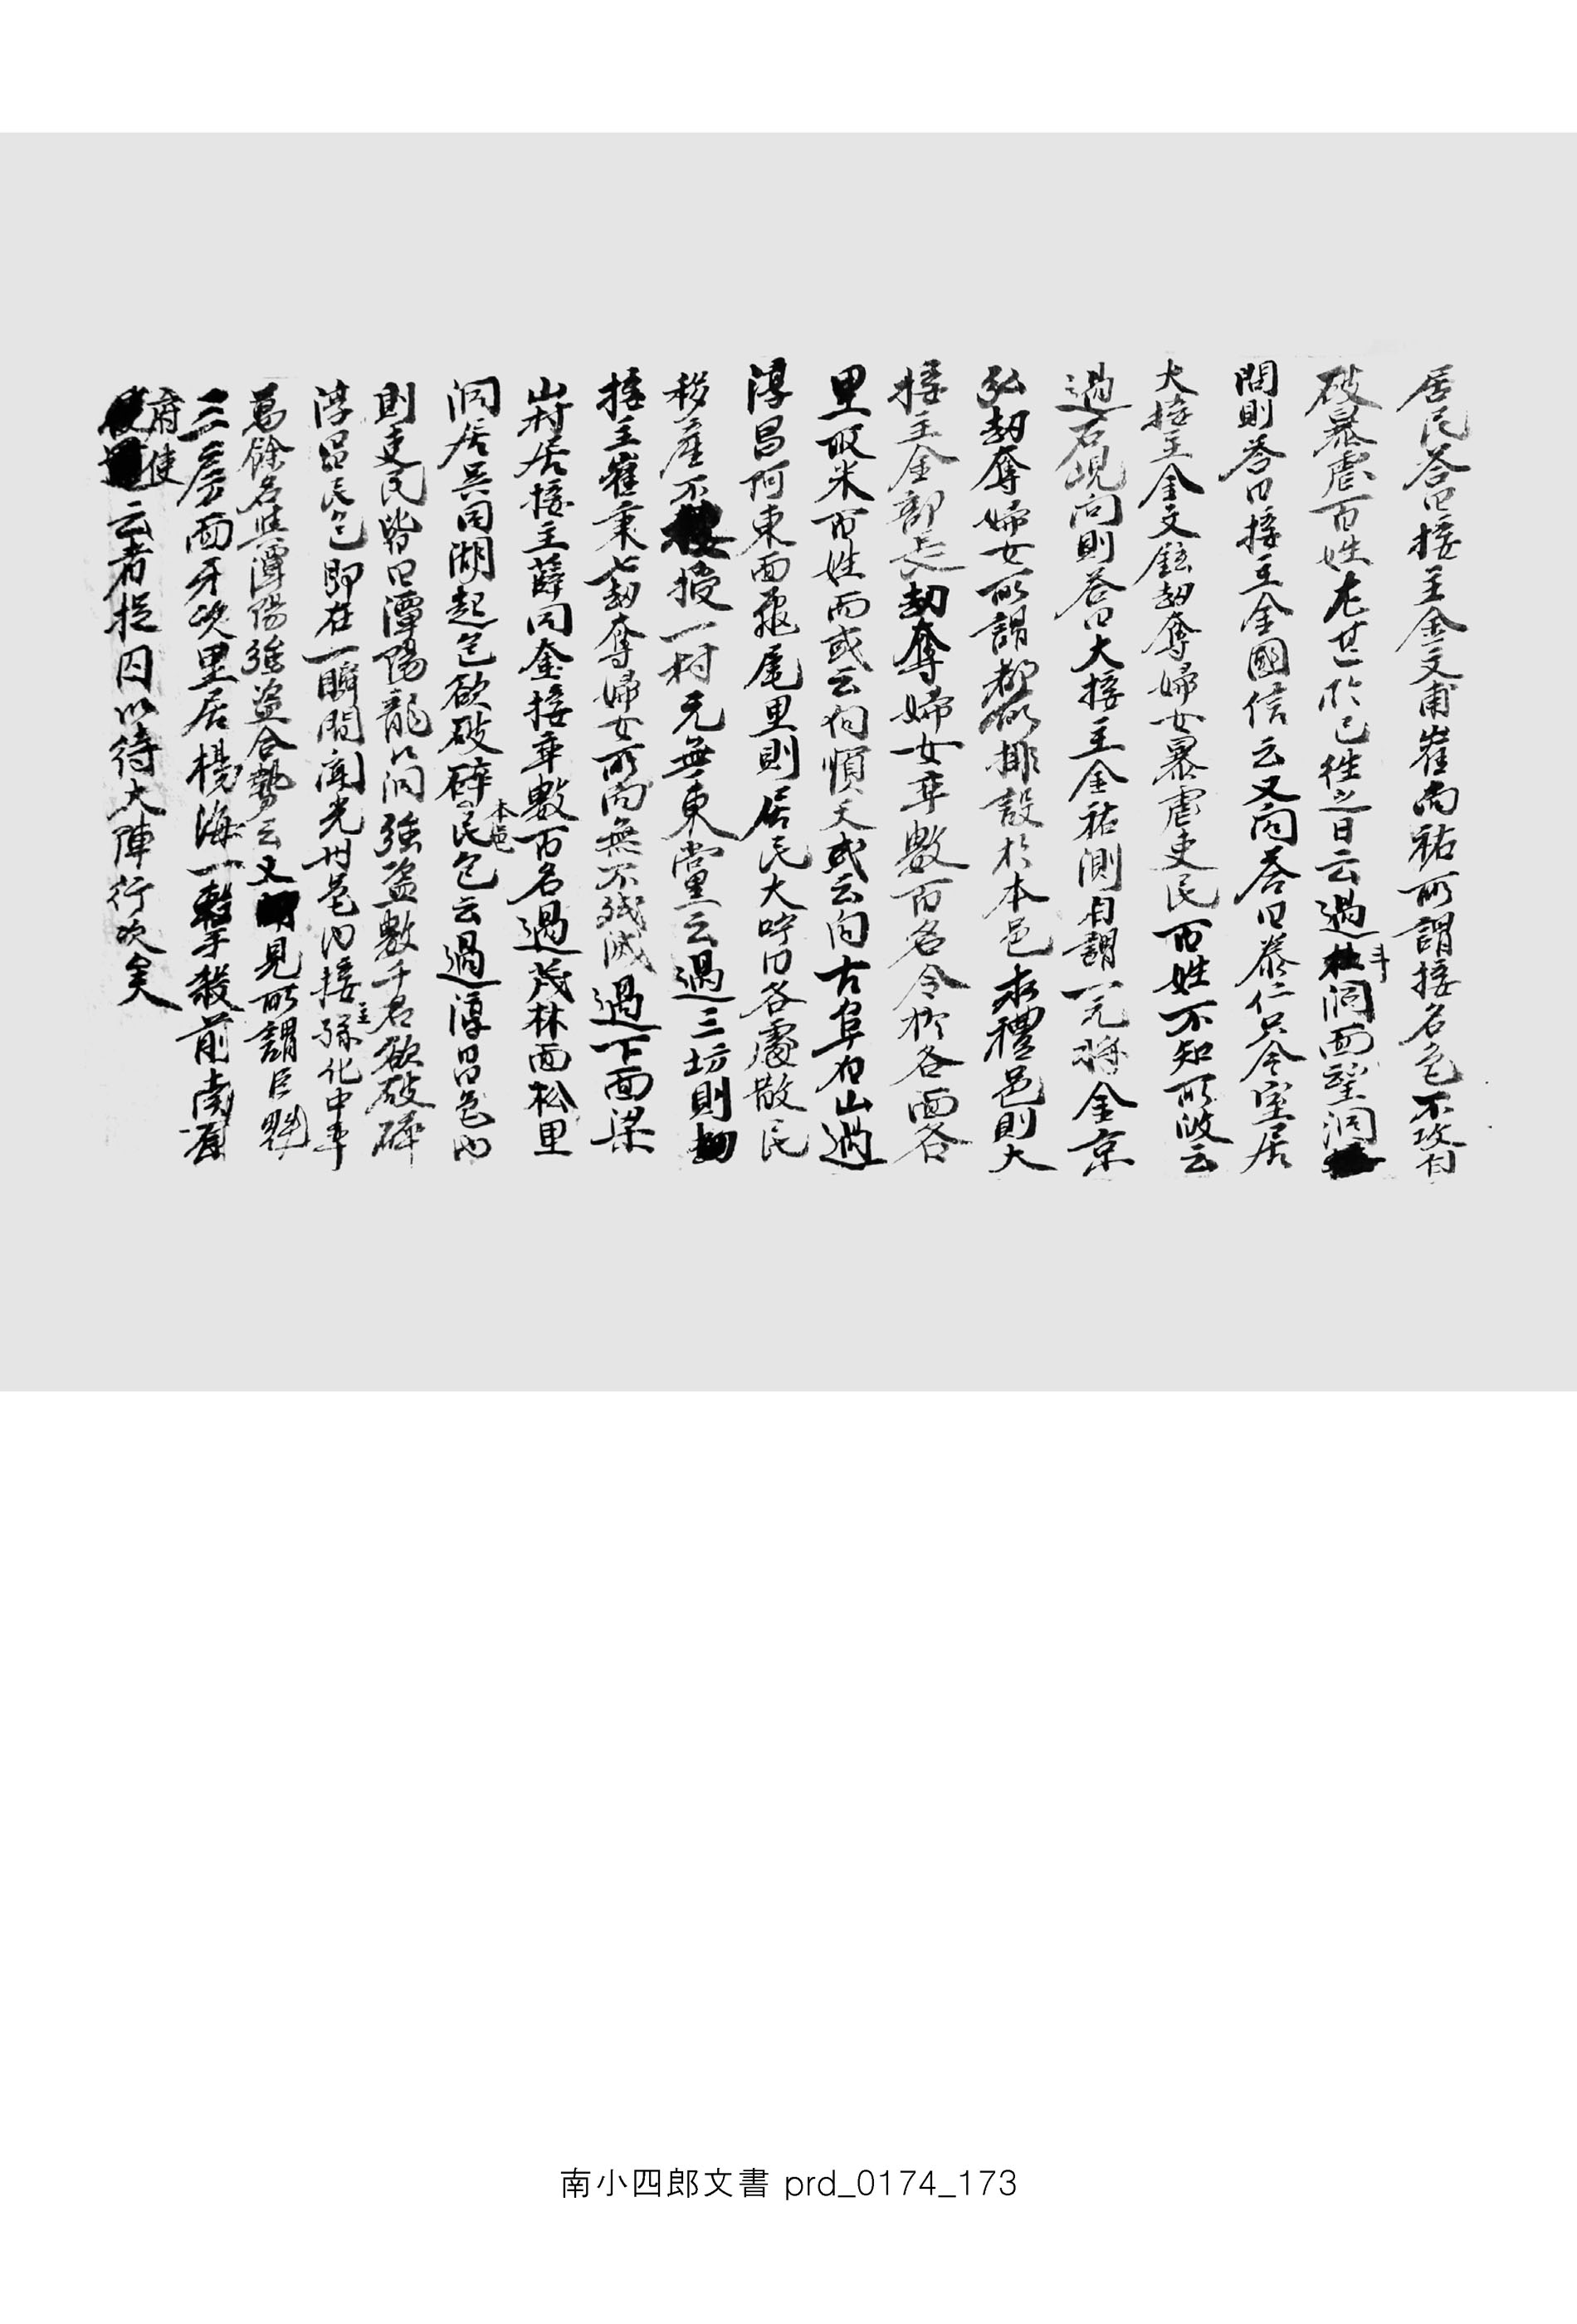 居民答曰接主金文甫崔尚祐所謂接名色不改自
破暴虐百姓尤甚於已往之日云過杜斗洞面望洞
問則答曰接主金國信云又問答曰泰仁只今室居
大接主金文鉉劫奪婦女暴虐吏民百姓不知所破云
過石峴問則答曰大接主金祐測自謂一元將金京
弘劫奪婦女所謂都所排設於本邑求禮邑則大
接主金部長劫奪婦女率數百名令於各面各
里取米百姓而或云向順天或云向古阜白山過
淳昌阿東面龜尾里則居民大呼曰各處散民
移産不接一村元無東黨里云過三坊則
接主崔秉七劫奪婦女所向無不殘滅過下面梁
山村居接主薛同金接率數百名過茂林面松里
洞居吳同湖起包欲破碎本邑民包云過淳昌邑內
則吏民皆曰潭陽龍以洞強盜數千名欲破碎
淳昌民包卽在一瞬間聞光州邑內接主孫化中率
萬餘名與潭陽強盜合勢云又見所謂臣魁
三房面牙次里居楊海一擊手殺前南原
府使云者捉囚以待大陣行次矣
南小四郎文書 prd_0174_173